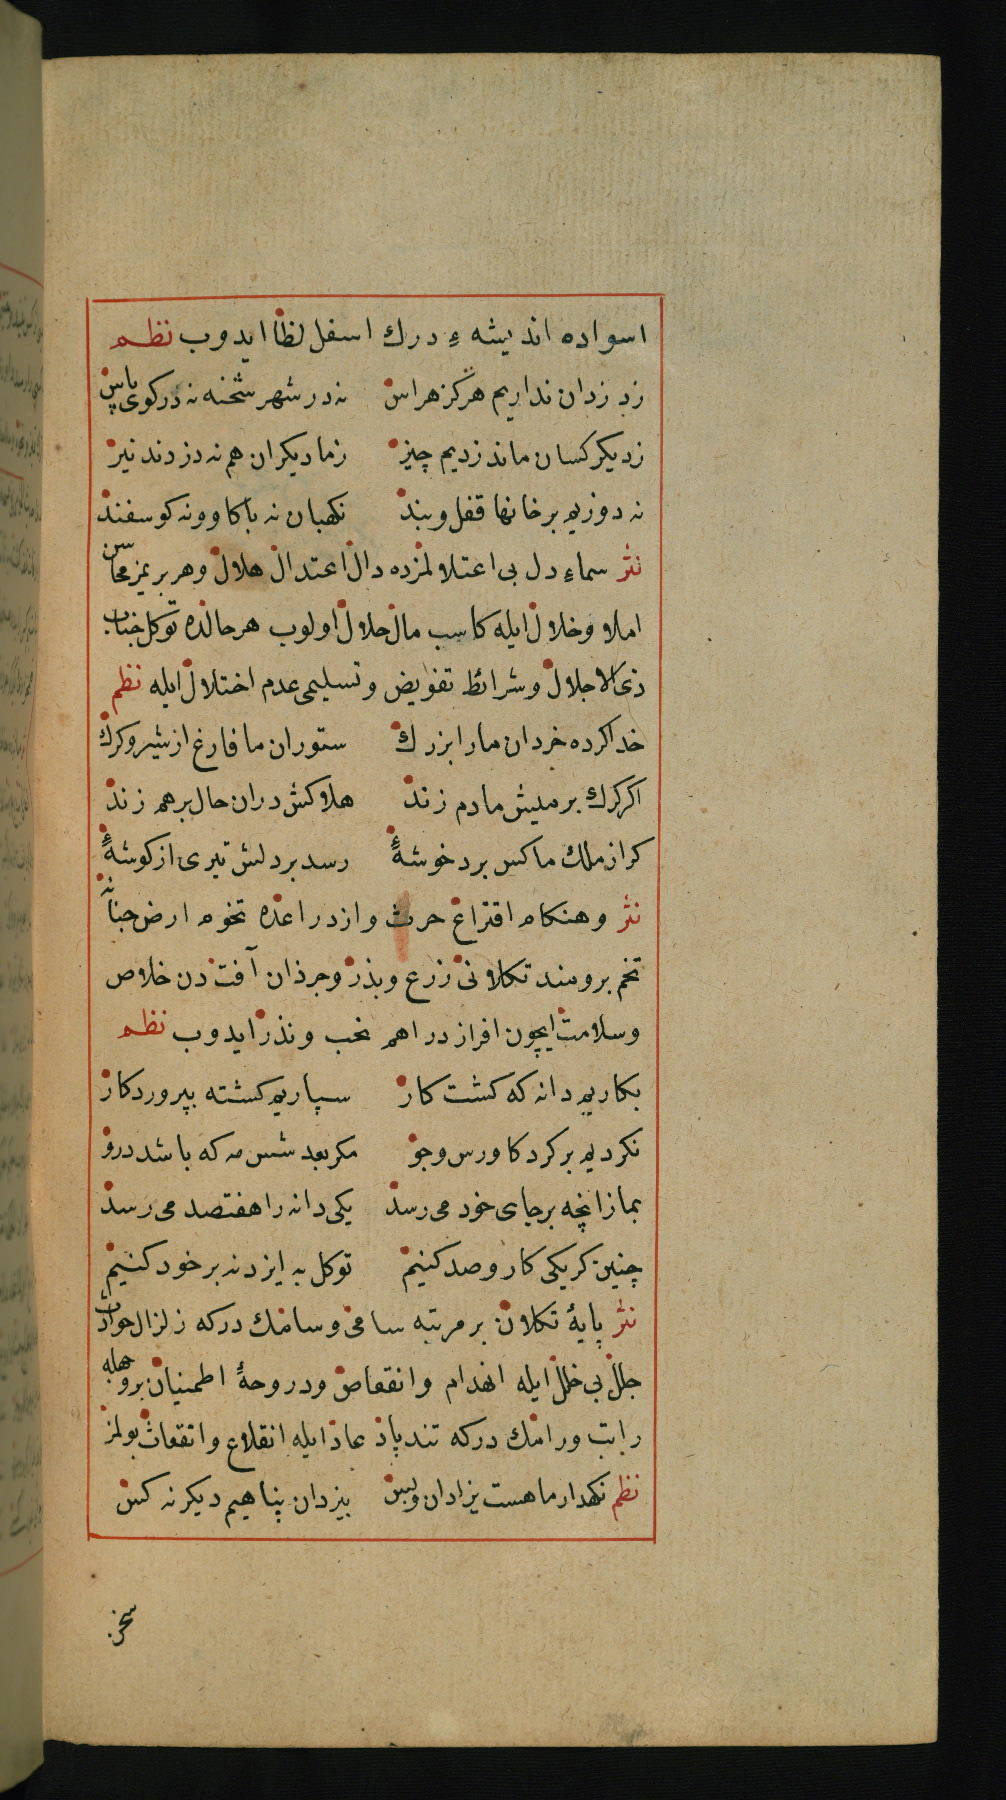 اسواده اندیشهٔ درك اسفل لظا ایدوب نظم
زدزدان نداریم هرگز هراس نه در شهر شحنه نه در کوی پاس
زدیگر کسان ماند زدیم چیز زما دیکران هم نه دزدند نیز
نه دوزیم بر خانها قفل و بند نکهبان نه با کاو و نه کوسفند
نثر سماء دل بی اعتلالمزده دال اعتدال هلال وهر بریمز محاسن
املا وخلال ایله کاسب مال حلال اولوب هر حالده توکل جناب
ذی الاجلال وشرائط تفویض وتسلیمی عدم اختلال ایله نظم
خدا کرده خردان مارا بزرك ستوران ما فارغ از شیر و کرك
اکر کرك بر میش ما دم زند هلاکش دران حال برهم زند
کر از ملك ما کس برد خوشهٔ رسد بر دلش تیری از کوشهٔ
نثر وهنکام اقتراع حرث وازدراعده تخوم ارض جنانه
تخم برومند تکلانی زرع وبذر وجرذان آفتدن خلاص
وسلامت ایچون افراز دراهم نحب ونذر ایدوب نظم
بکاریم دانه که کشت کار سپاریم کشته بپروردکار
نکردیم بر کرد کاورس و جو مکر بعد شش مه که باشد درو
بما زانچه بر جای خود می رسد یکی دانه را هفتصد می رسد
چنین کر یکی کار و صد کنیم توکل به ایزد نه بر خود کنیم
نثر پایهٔ تکلان بر مرتبه سامی وسامك درکه زلزال حوادث
جلل بی خلل ایله انهدام وانقعاض ودروحهٔ اطمینان بروجهله
راتب ورامك درکه تندباد عاد ایله انقلاع وانقعاث بولمز
نظم نکهدار ما هست یزدان و بس بیزدان پناهیم دیکر نه کس
سخن